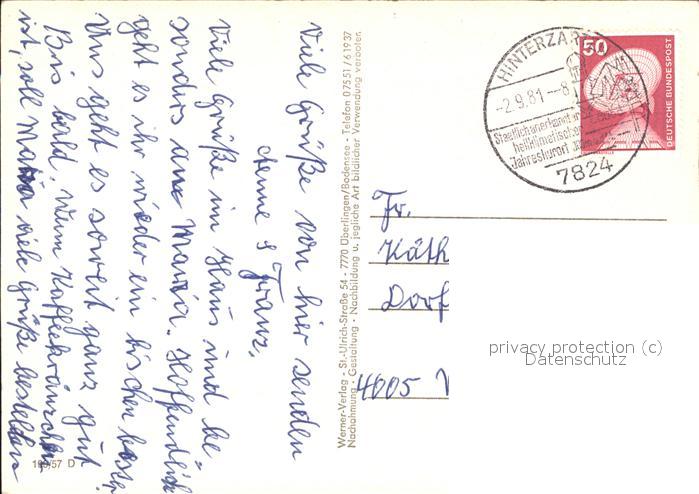 Viele Grüße von hier senden
Anne & Franz.
Viele Grüße im Haus und be-
sonders an Maria. Hoffendlich
geht es ihr wieder ein bischen besser
Uns geht es soweit ganz gut.
Bis bald. Wenn Kaffeekränzchen
ist, soll Maria viele Grüße bestellen
199/57 D
Werner-Verlag - St.-Ulrich-Straße 54 - 7770 Überlingen/Bodensee - Telefon 07551/61937
Nachahmung - Gestaltung - Nachbildung u. jegliche Art bildlicher Verwendung verboten.
HINTERZAR
-2.9.81-8
Staatlich anerkannter
heilklimatischer
Jahreskurort
7824
50
DEUTSCHE BUNDESPOST
Fr.
Käth
Dorf
4005
privacy protection (c)
Datenschutz